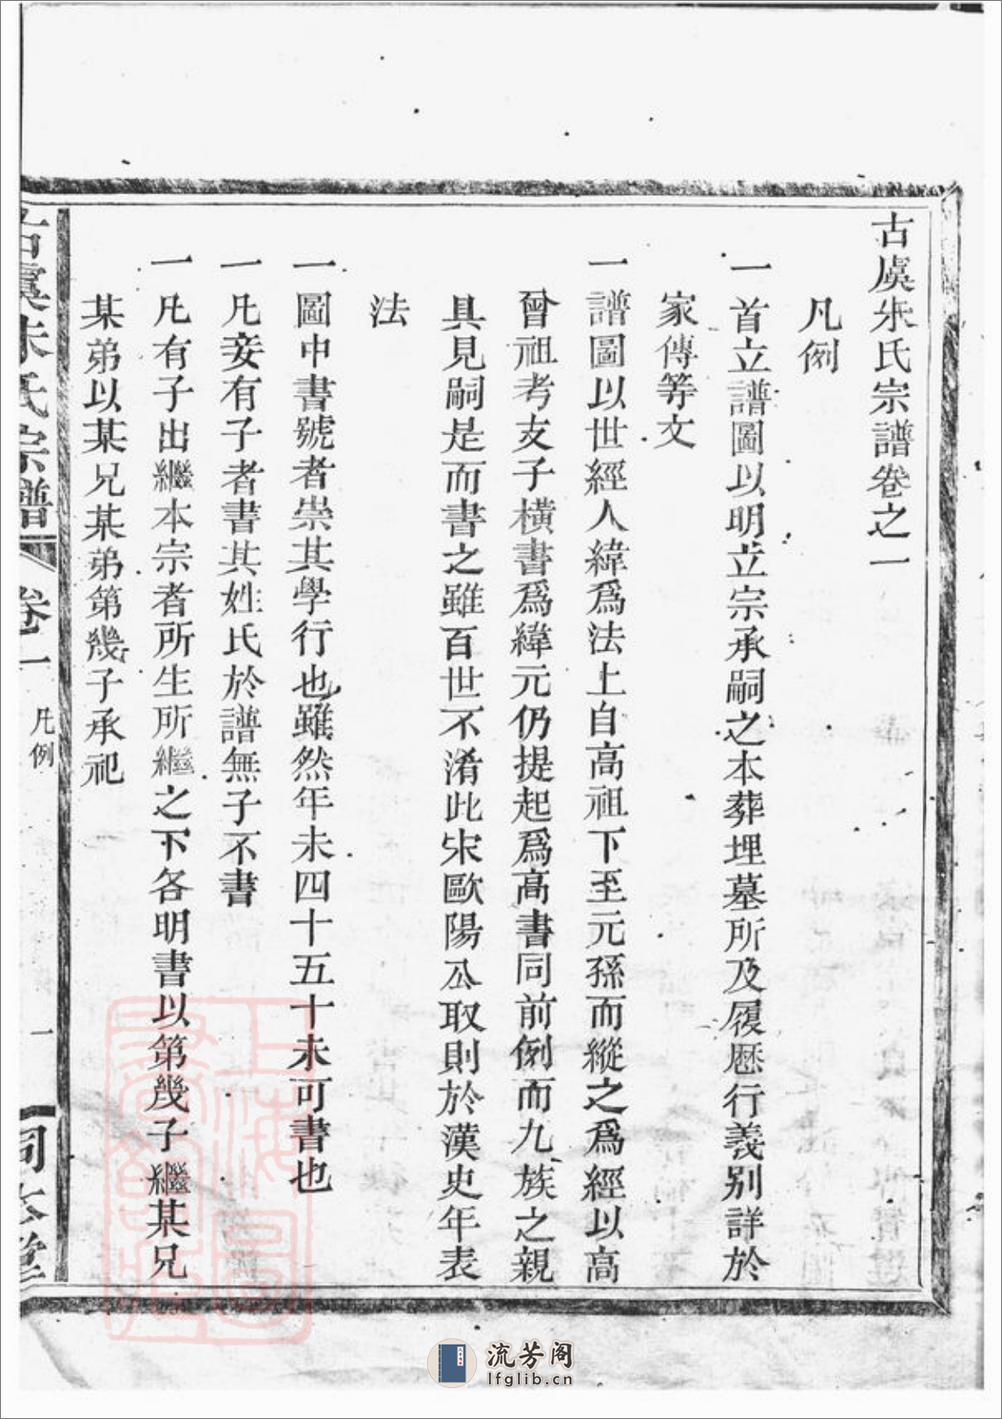 古虞朱氏宗譜卷之一
凡例
一首立譜圖以明立宗承嗣之本葬埋墓所及履歷行義別詳於
家傳等文
一譜圖以世經人緯爲法上自高祖下至元孫而縱之爲經以高
曾祖考支子橫書爲緯元仍提起爲高書同前例而九族之親
具見嗣是而書之雖百世不淆此宋歐陽公取則於漢史年表
法
一圖中書號者崇其學行也雖然年未四十五十未可書也
一凡妾有子者書其姓氏於譜無子不書
一凡有子出繼本宗者所生所繼之下各明書以第幾子繼某兄
某弟以某兄某弟第幾子承祀
古虞朱氏宗譜
卷一
凡例
一
同本堂
上海圖書館藏
流芳阁
lfglib.cn